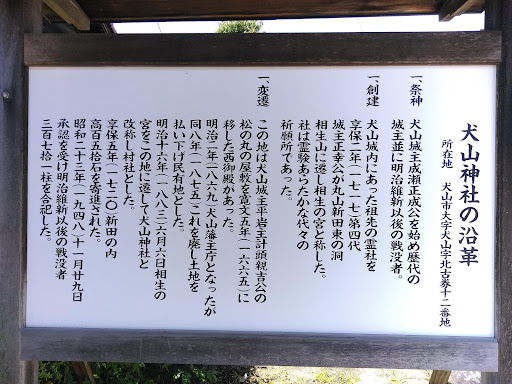 犬山神社の沿革
所在地 犬山市大字犬山字北古券十二番地
一、祭神
犬山城主成瀬正成公を始め歴代の
城主並に明治維新以後の戦没者。
一、創建
犬山城内にあった祖先の霊社を
享保二年(一七一七)第四代
城主正幸公が丸山新田東の洞
相生山に遷し相生の宮と称した。
社は霊験あらたかな代々の
祈願所であった。
一、変遷
この地は犬山城主平岩主計頭親吉公の
松の丸の屋敷を寛文五年(一六六五)に
移した西御殿があった。
明治二年(一八六九)犬山藩主庁となったが
同八年(一八七五)これを廃し土地を
払い下げ民有地とした。
明治十六年(一八八三)六月六日相生の
宮をこの地に遷して犬山神社と
改称し村社とした。
享保五年(一七二〇)新田の内
高百五拾石を寄進された。
昭和二十三年(一九四八)十一月廿九日
承認を受け明治維新以後の戦没者
三百七拾一柱を合祀した。